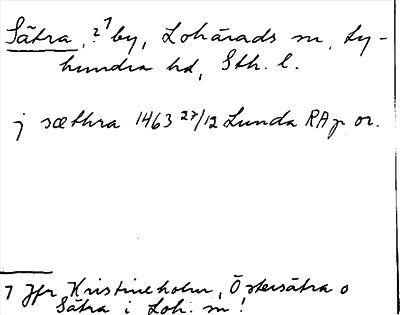 Sätra, ?⁷ by, Lohärads sn, Ly-
hundra hd, Sth. l.
j sæthra 1463 27/12 Lunda RAp or.
7 Jfr Kristineholm, Östersätra o
Sätra i Loh. sn!